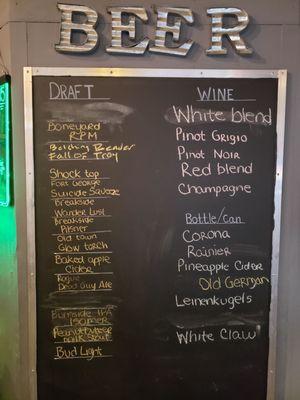 BEER
DRAFT
Boneyard
RPM
Belching Beaver
Fall of Troy
Shock top
Fort George
Suicide Squeeze
Breakside
Wander Lust
Breakside
Pilsner
Old town
Glow torch
Baked apple
Cider
Rogue
Dead Guy Ale
Burnside IPA
Isomer
Peanut butter
milk stout
Bud Light
WINE
White blend
Pinot Grigio
Pinot Noir
Red blend
Champagne
Bottle/Can
Corona
Rainier
Pineapple Cider
Old German
Leinenkugels
White Claw